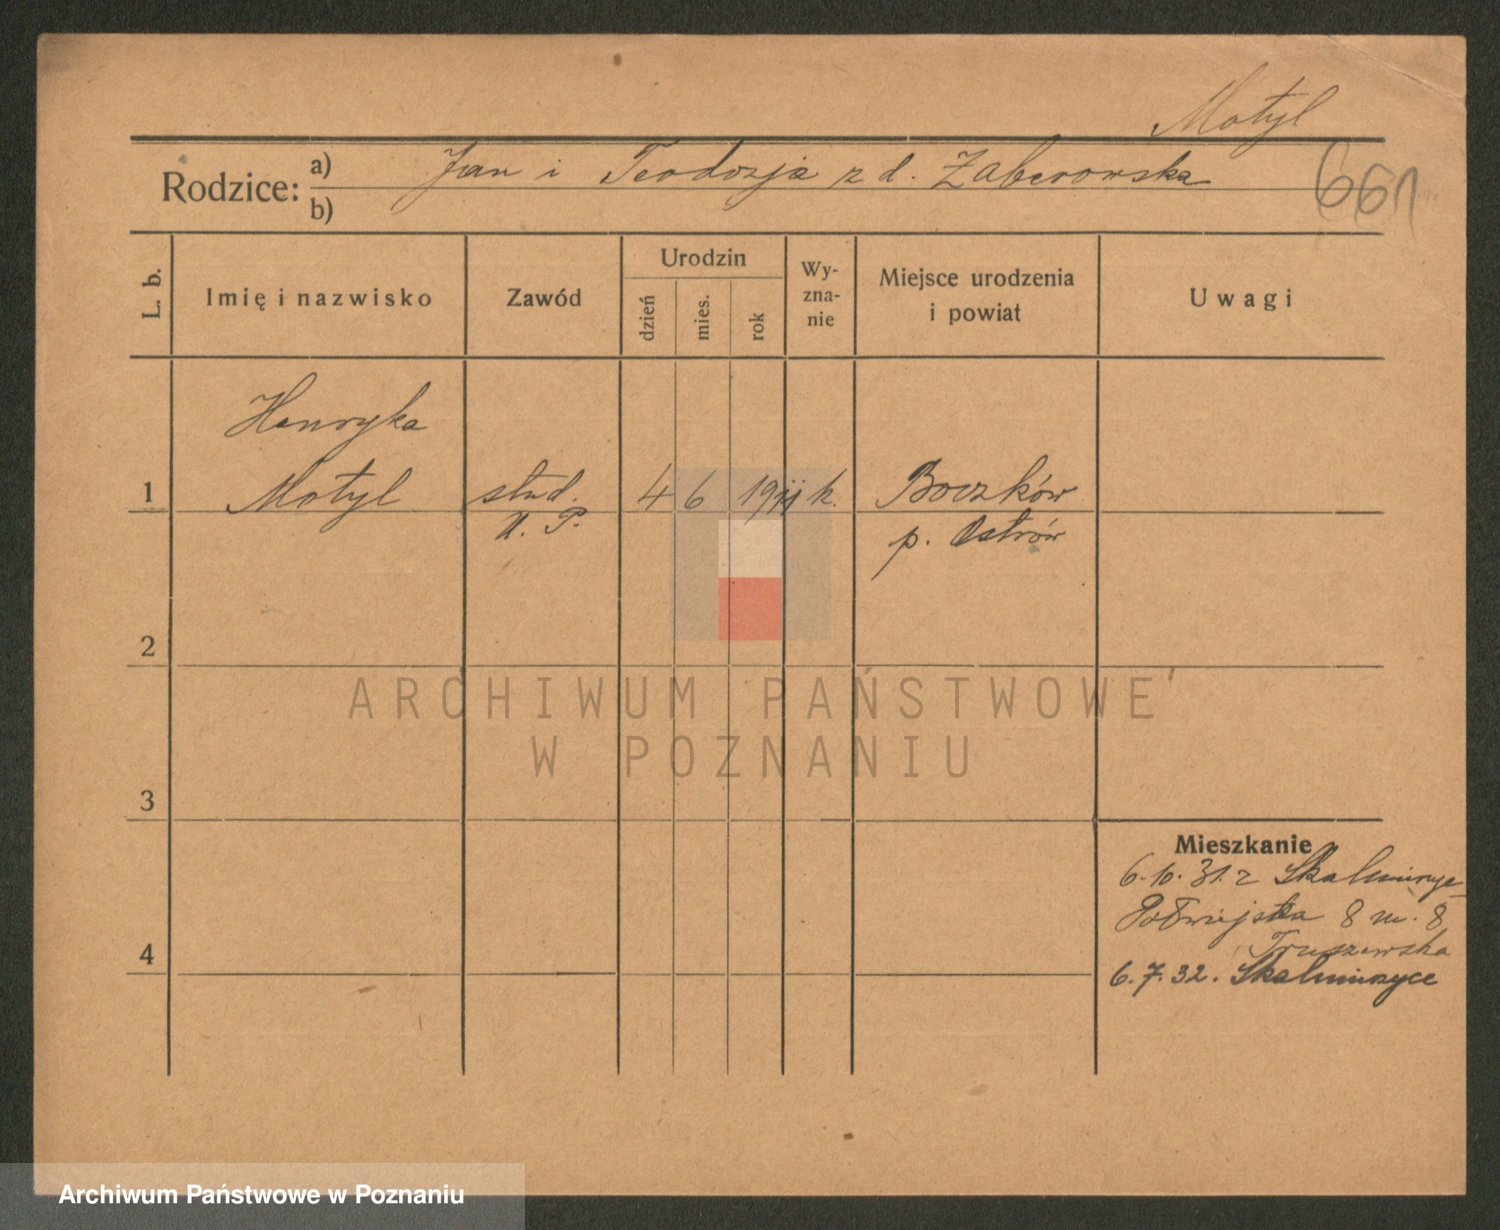 Motyl
Rodzice: a) Jan i Teodozja z d. Zaberowska
b)
661
L. b.
Imię i nazwisko
Zawód
Urodzin
dzień
mies.
rok
Wy-
zna-
nie
Miejsce urodzenia
i powiat
Uwagi
Henryka
1 Motyl stud. 4 6 1911 k. Boczków
U. P. p. Ostrów
2
ARCHIWUM PAŃSTWOWE
W POZNANIU
3
Mieszkanie
6.10.31. z Skalmierzyc
Półwiejska 8 m. 8
Truszewska
4
6.7.32. Skalmierzyce
Archiwum Państwowe w Poznaniu